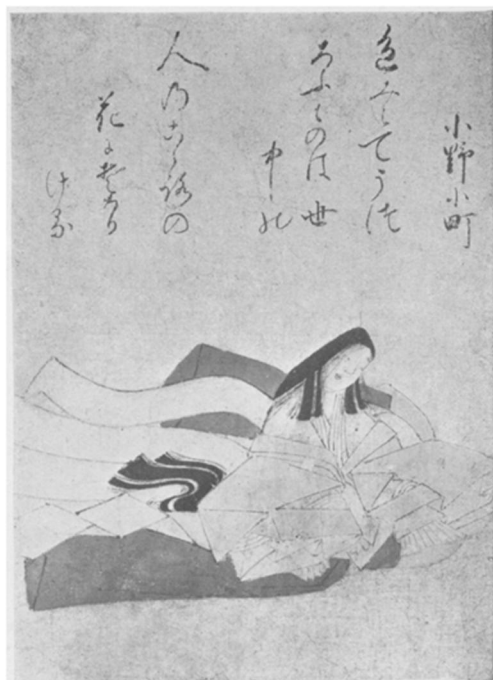 小野小町
色みえてうつ
ろふものは世
中の
人のこゝろの
花にそあり
ける